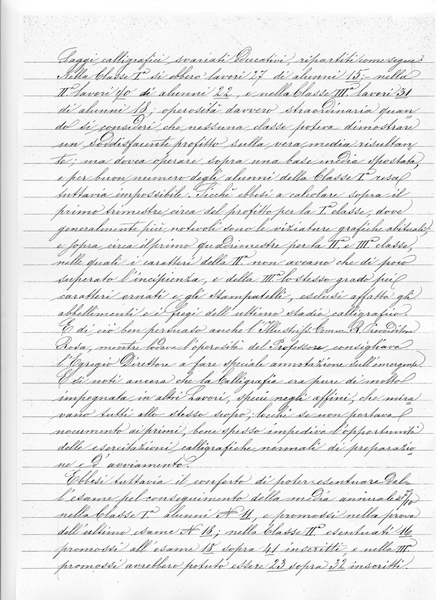 Saggi calligrafici svariati Educativi, ripartiti come segue:
Nella Classe Iª si ebbero lavori 27 di alunni 15 – nella
IIª lavori 40 di alunni 22, e nella Classe IIIª lavori 31
di alunni 18; operosità davvero straordinaria quan
do si consideri che nessuna classe poteva dimostrare
un soddisfacente profitto sulla vera media risultan
te; ma dovea operare sopra una base media spostata,
e per buon numero degli alunni della Classe Iª resa
tuttavia impossibile. Sicchè ebbesi a calcolare sopra il
primo trimestre circa del profitto per la Iª classe, dove
generalmente più notevoli sono le viziature grafiche abituali;
e sopra circa il primo quadrimestre per la IIª e IIIª classe,
nelle quali i caratteri della IIª non aveano che di poco
superato l'incipienza, e della IIIª lo stesso grado pei
caratteri ornati e gli stampatelli, esclusi affatto gli
abbellimenti e i fregi dell'ultimo stadio calligrafico.
E di ciò ben persuaso anche l' R. Provveditore
Rosa, mentre lodava l'operosità del Professore, consigliava
l'Egregio Direttore a fare speciale annotazione sull'emergente.
E si noti ancora che la Calligrafia era pure di molto
impegnata in altri Lavori, specie negli affini, che mira
vano tutti allo stesso scopo; locchè se non portava
nocumento ai primi, bene spesso impediva l'opportunità
delle esercitazioni calligrafiche normali di preparazio
ne e d'avviamento.
Ebbesi tuttavia il conforto di poter esentuare Dal
l'esame pel conseguimento della media annuale 7/10
nella Classe Iª alunni Nº 11, e promossi nella prova
dell'ultimo esame Nº 18; nella Classe IIª esentuati 16
promossi all'esame 15 sopra 41 inscritti, e nella IIIª
promossi avrebbero potuto essere 23 sopra 32 inscritti